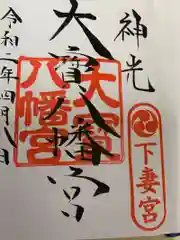 神光
下妻宮
大寳八幡宮
大寳八幡宮
令和二年四月八日